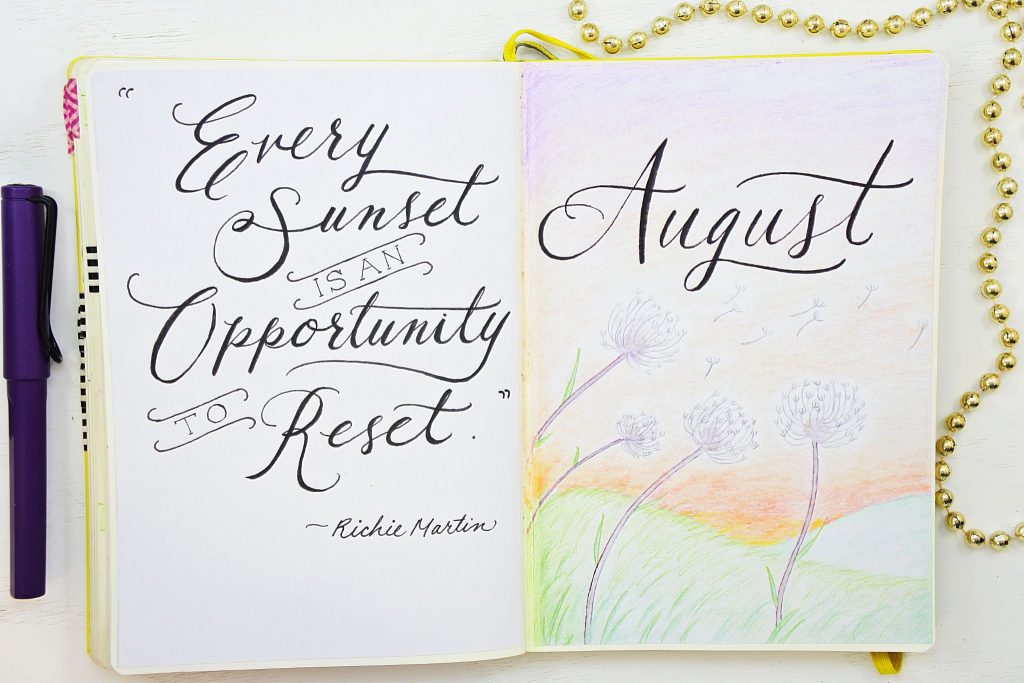 “ Every
Sunset
IS AN
Opportunity
TO Reset. ”
~ Richie Martin
August